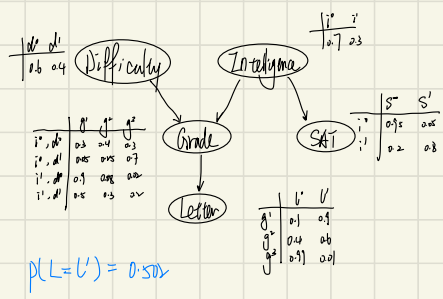 d⁰ d¹
0.6 0.4
Difficulty
Intelligence
i⁰ i¹
0.7 0.3
g¹ g² g³
i⁰, d⁰ 0.3 0.4 0.3
i⁰, d¹ 0.05 0.25 0.7
i¹, d⁰ 0.9 0.08 0.02
i¹, d¹ 0.5 0.3 0.2
Grade
SAT
S⁰ S¹
i⁰ 0.95 0.05
i¹ 0.2 0.8
Letter
l⁰ l¹
g¹ 0.1 0.9
g² 0.4 0.6
g³ 0.99 0.01
P(L=l¹) = 0.502